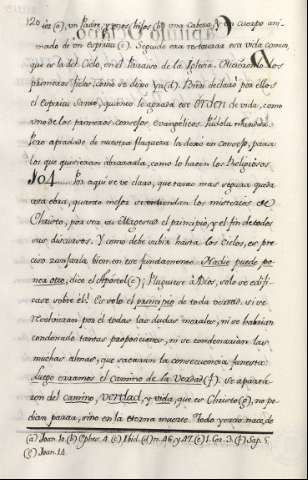 120
tes (a), un Padre, y unos hijos (b) una Cabeza, y un cuerpo ani-
mado de un espiritu (c). Segundo era restaurar esta vida comun,
que es la del Cielo, en el Paraiso de la Iglesia. Observaronla los
primeros fieles, como se dexo ya (d). Bien declarò por ellos
el espiritu Santo, quanto le agrada este orden de vida, como
uno de los primeros consejos evangelicos. Pidela
Pero apiadado de nuestra flaqueza la dexò en consejo, para
los que quisieran abrazarla, como lo hacen los Religiosos.
104 Por aqui se ve claro, que tanto mas segura queda
esta obra, quanto mejor se entiendan los misterios de
Christo, por ser su Magestad el principio, y el fin de todos
sus discursos. Y como debe subir hasta los Cielos, es pre-
ciso zanjarla bien en este fundamento. Nadie puede po-
ner otro, dice el Apostol (e); Pluguiese à Dios, solo se edifi-
case sobre èl! Es solo el principio de toda verdad. si se
resolvieran por èl todas las dudas morales, ni se habrian
condenado tantas proposiciones, ni se condenarian las
muchas almas, que sacaràn la consecuencia funesta:
Luego erramos el camino de la Verdad (f). Se aparta-
ron del camino, verdad, y vida, que es Christo (g), no po-
dian parar, sino en la eterna muerte. Todo yerro nace, de
(a) Joan. 10. (b) Ephes. 4. (c) Ibid. (d) n. 46. y 47. (e) 1. Cor. 3. (f) Sap. 5.
(g) Joan. 14.